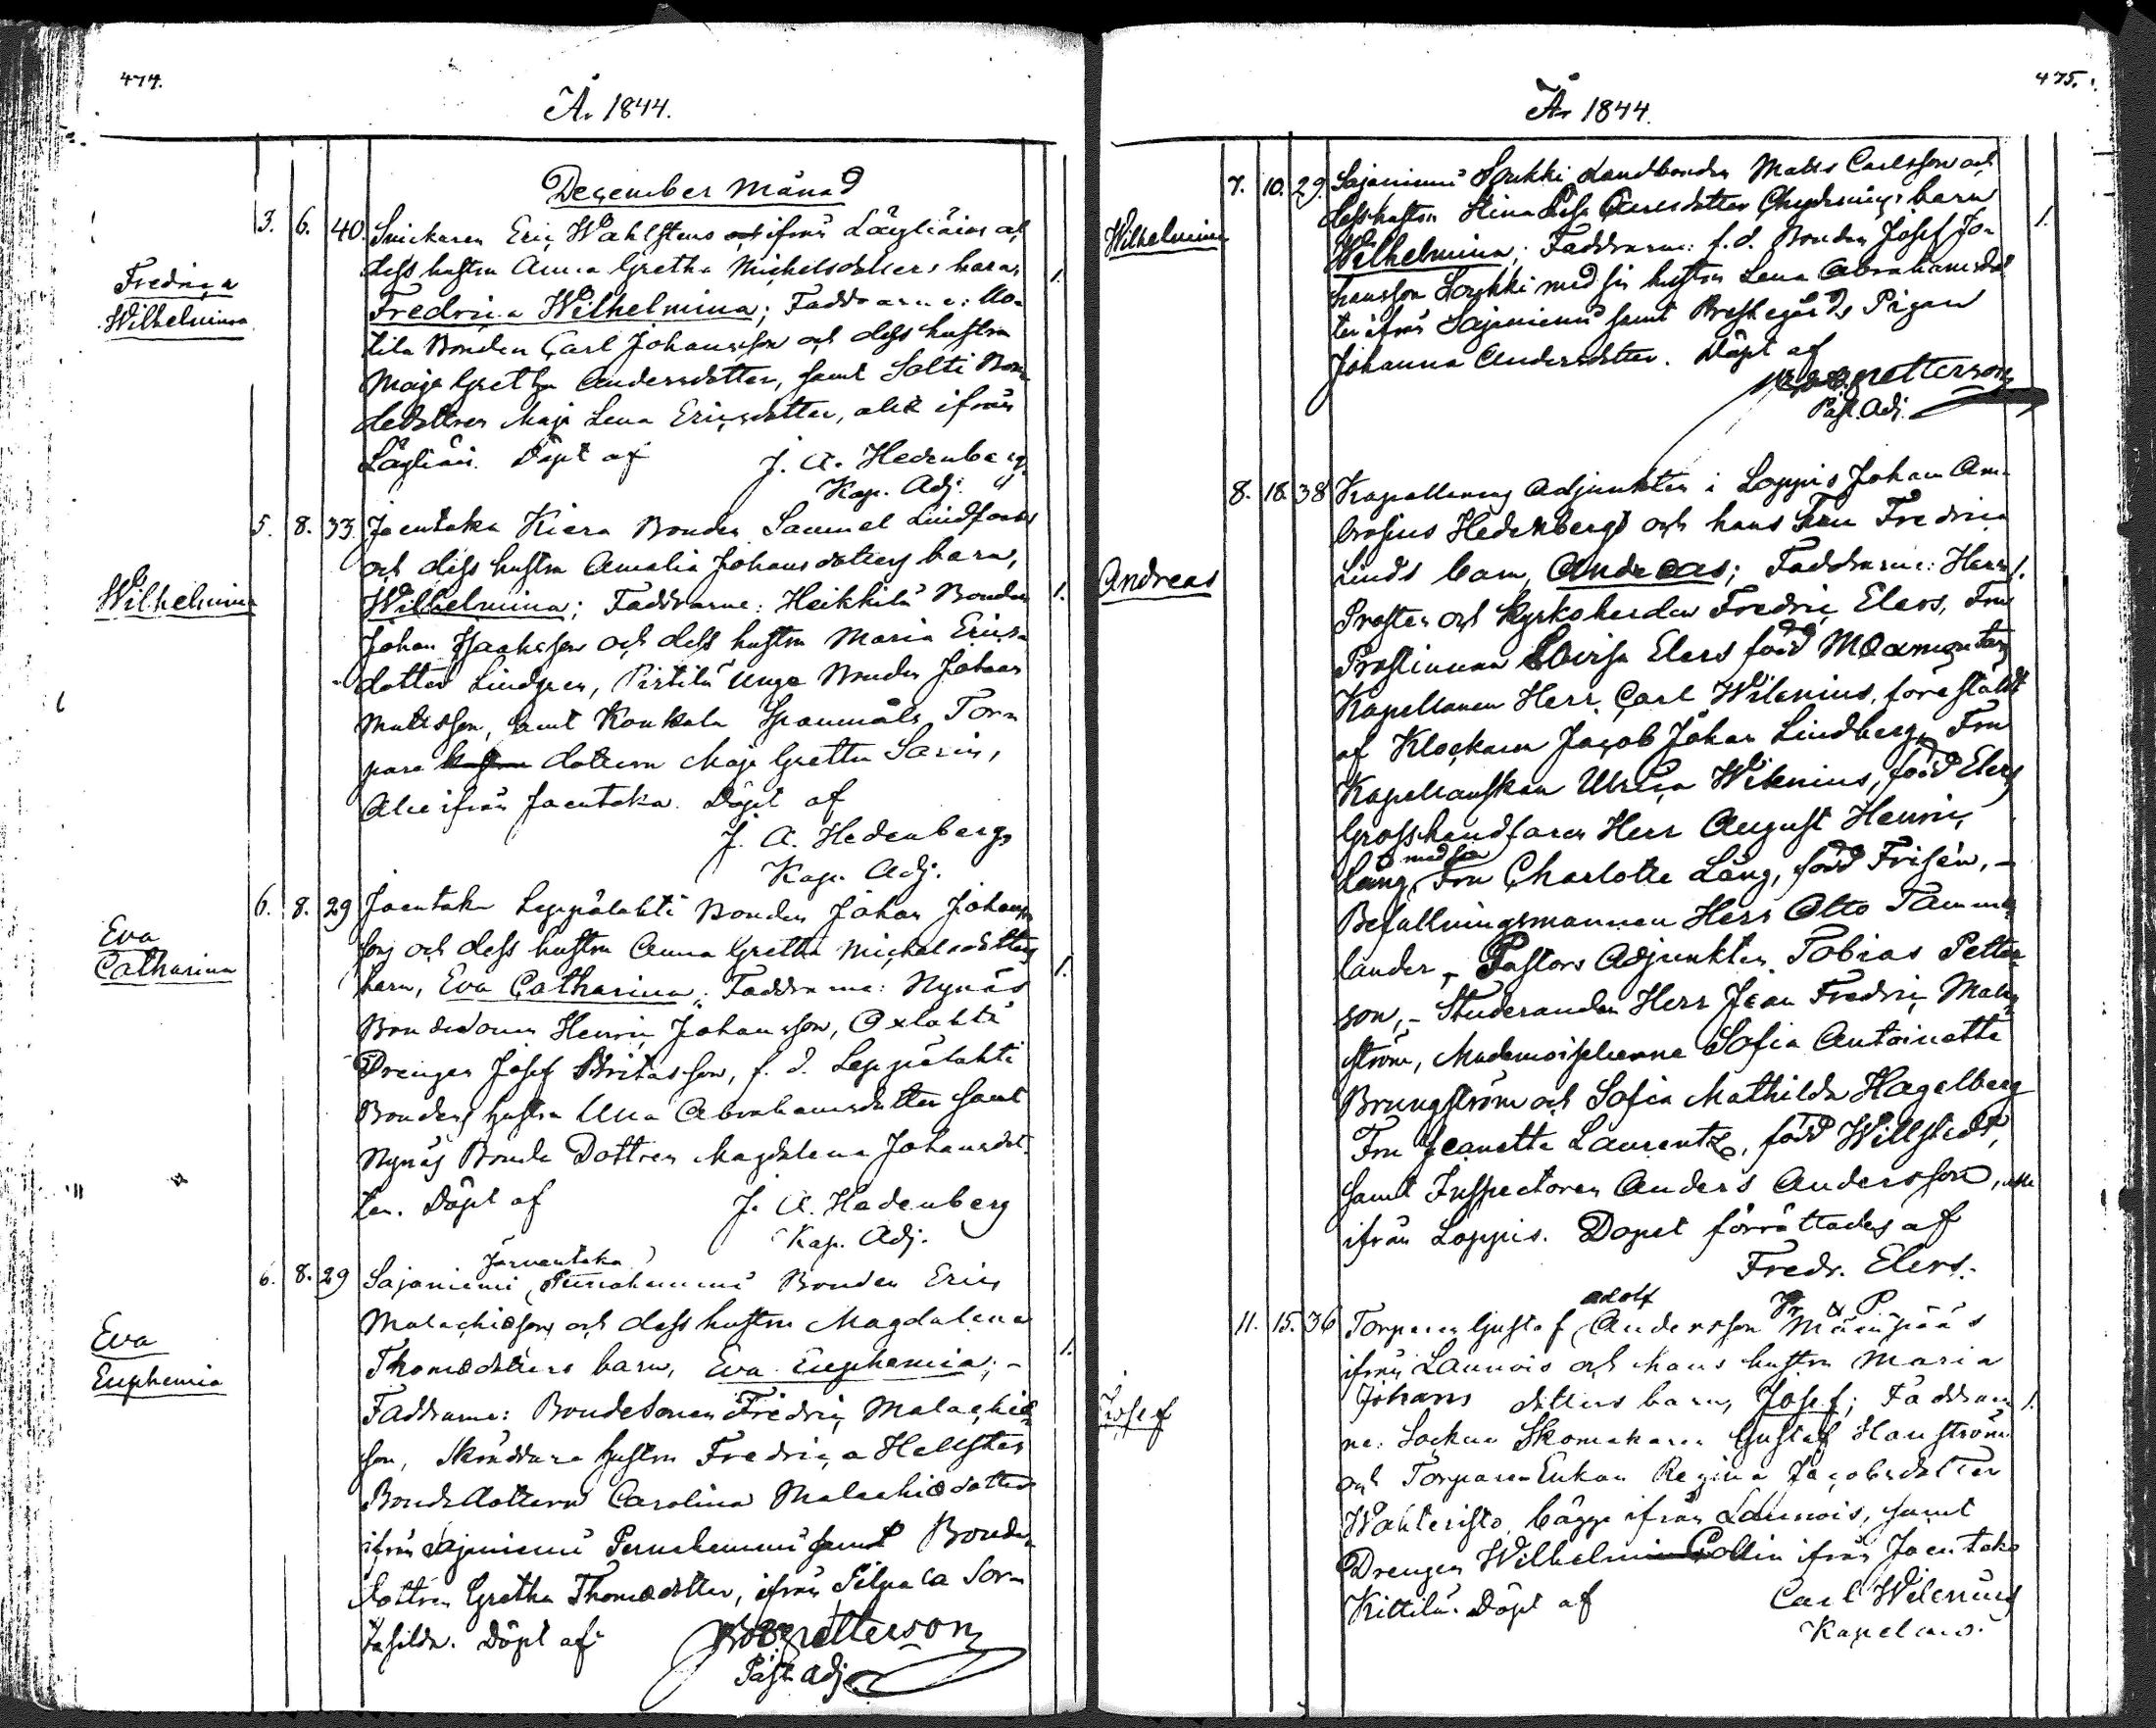 474.
År 1844.
December Månad
3. 6. 40. Snickaren Eric Wahlstens ifrån Läyliäis och
Fredrica
Wilhelmina
dess hustru Anna Gretha Michelsdotters barn,
Fredrica Wilhelmina; Faddrarne: Uo-
tila Bonden Carl Johansson och dess hustru
Maja Gretha Andersdotter, samt Solti Bon-
dedottren Maja Lena Ericsdotter, alle ifrån
Läyliäis. Döpt af J. A. Hedenberg.
Kap. Adj.
5. 8. 33. Joentaka Kiera Bonden Samuel Lindfors
och dess hustru Amalia Johansdotters barn,
Wilhelmina
Wilhelmina; Faddrarne: Heikkilä Bonden
Johan Isaaksson och dess hustru Maria Erics-
dotter Lindgren, Pirtilä unga Bonden Johan
Mattsson, samt Konkala Tor-
pare dottern Maja Gretha Sarin,
Alle ifrån Joentaka. Döpt af
J. A. Hedenberg,
Kap. Adj.
6. 8. 29 Joentaka Leppälahti Bonden Johan Johans-
Eva
Catharina
sons och dess hustru Anna Gretha Michelsdotters
barn, Eva Catharina; Faddrarne: Nynäs
Bondesonen Henric Johansson, Oxlahti
Drengen Josef Britasson, f. d. Leppälahti
Bondens hustru Ulla Abrahamsdotter samt
Nynäs Bonde Dottren Magdalena Johansdot-
ter. Döpt af J. A. Hedenberg
Kap. Adj.
Järventaka
6. 8. 29 Sajaniemi, Bonden Eric
Malachiæsons och dess hustru Magdalena
Eva
Euphemia
Thomædotters barn, Eva Euphemia; -
Faddrarne: Bondesonen Fredric Malachiæ-
son, Skräddare hustrun Fredrica Hellsten
Bondedottern Carolina Malachiædotter
ifrån Sajaniemi samt Bonde-
dottren Gretha Thomædotter, ifrån
Döpt af: Tob. Petterson
Past. Adj.
475.
År 1844.
7. 10. 29. Sajaniemi Landbonden Matts Carlsson och
Wilhelmina
dess hustru Stina Lisa Carlsdotter barn
Wilhelmina; Faddrarne: f. d. Bonden Josef Jo-
hansson med sin hustru Lena Abrahamsdot-
ter ifrån Sajaniemi samt Prestegårds Pigan
Johanna Andersdotter. Döpt af
Petterson
Past. Adj.
8. 18. 38 Kapellans Adjunkten i Loppis Johan Am-
brosius Hedenbergs och hans Fru Fredrica
Andreas
Linds barn, Andreas; Faddrarne: Herr
Prosten och Kyrkoherden Fredric Elers, Fru
Prostinnan Lovisa Elers född
Kapellanen Herr Carl Wilenius, föreställd
af Klockaren Jacob Johan Lindberg, Fru
Kapellanskan Ulrica Wilenius, född Elers
Grosshandlaren Herr August Henric
med sin
Lång, Fru Charlotte Lång, född Frisén, -
Befallningsmannen Herr Otto Tamme-
lander, - Pastors Adjunkten Tobias Petter-
son, - Studeranden Herr Jean Fredric Malm-
ström, Mademoisellerne Sofia Antoinette
Brungström och Sofia Mathilda Hagelberg
Fru Jeanette Laurentz, född Willstedt,
samt Inspectoren Anders Andersson, alle
ifrån Loppis. Dopet förrättades af
Fredr. Elers.
Pr. & P.
adolf
11. 15. 36 Torparen Gustaf Andersson Mäenpääs
ifrån Launois och hans hustru Maria
Josef
Johans dotters barn, Josef; Faddrar-
ne: Sockne Skomakaren Gustaf Hanström
och Torpare Enkan Regina Jacobsdotter
Wahteristo, bägge ifrån Launois, samt
Drengen Wilhelm Collin ifrån Joentaka
Kittilä. Döpt af Carl Wilenius
Kapellan.